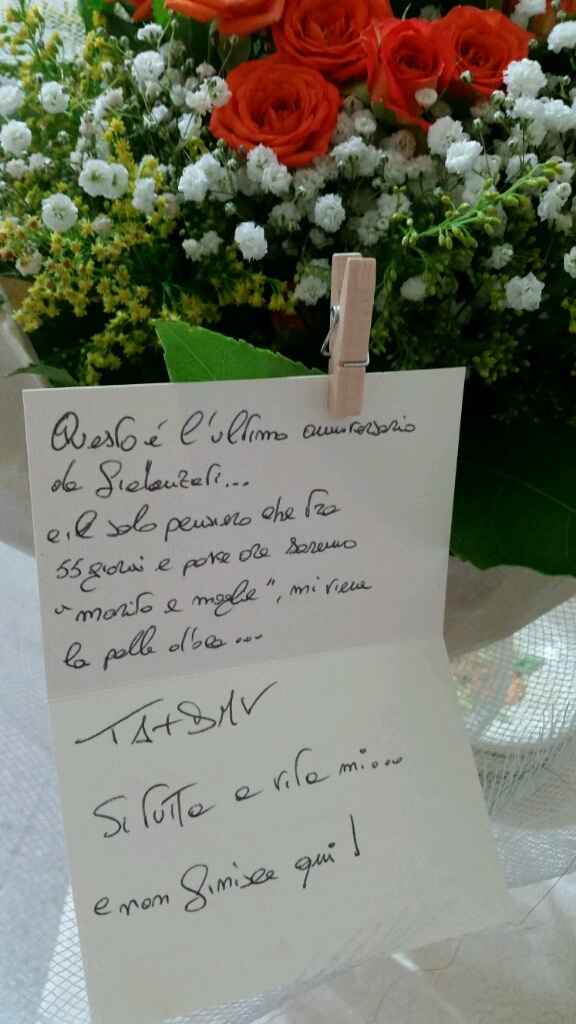 Questo è l'ultimo anniversario
da fidanzati...
e il solo pensiero che fra
55 giorni e poche ore saremo
"marito e moglie", mi viene
la pelle d'oca...
TA+DMV
Si tutta a vita mi....
e non finisce qui!